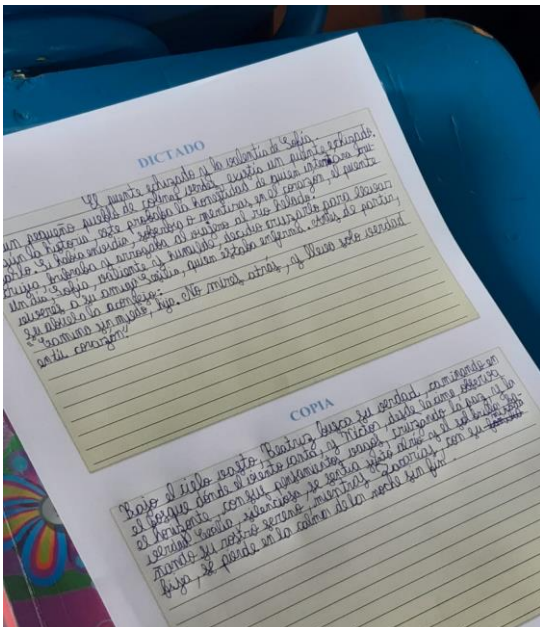 DICTADO
El puente echizado y la valentia de Sofia.
un pequeño pueblo de colinas verdes, existia un puente echizado.
gún la historia, este probaba la honestidad de quien intentara cru-
zarlo. Si habia envidia, soberbia o mentiras en el corazón, el puente
crujia, y arrojaba al viajero al rio helado.
Un dia, Sofia, valiente y humilde, decidio cruzarlo para llevar
viveres a su amiga Cecilia, quien estaba enferma. Antes de partir,
su abuela la aconsejo:
"Camina sin miedo, hija. No mires atrás, y lleva solo verdad
en tu corazon."
COPIA
Bajo el cielo vasto, Beatriz busca su verdad, caminando en
el bosque donde el viento canta, y Victor, desde la cima observa
el horizonte, con sus pensamientos vagos, cruzando la paz, y la
verdad. Cecilia, silenciosa, se sentia el sol
nando su rostro sereno, mientras Zacarias, con su
fija, se pierde en la calma de la noche sin fin.